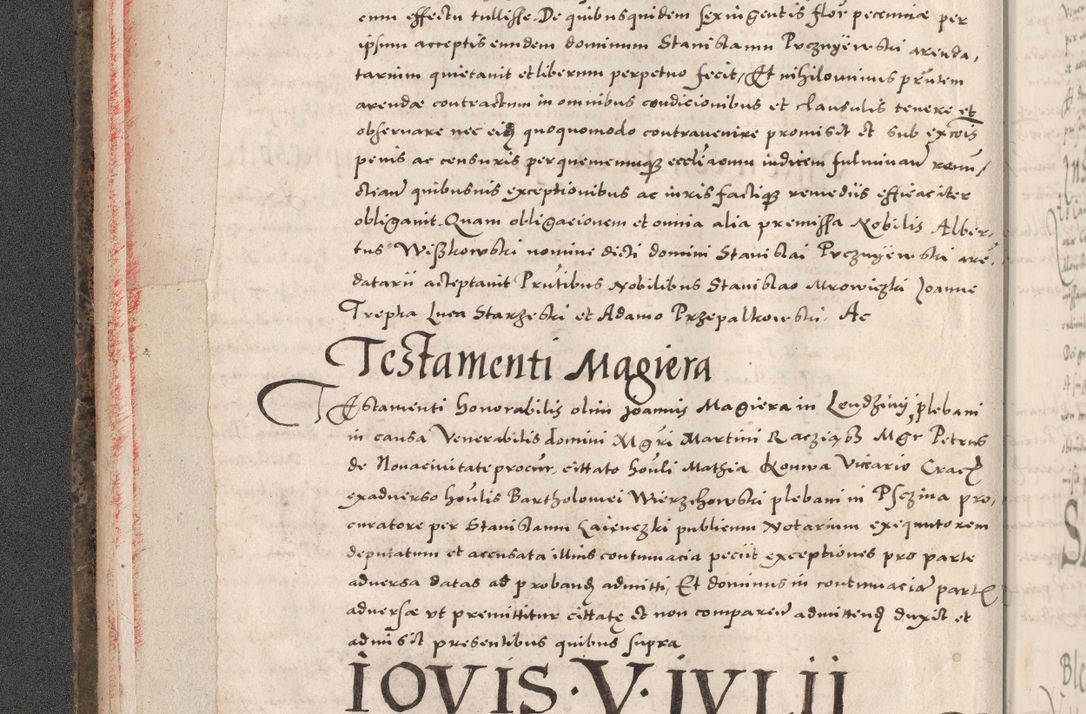 cum effectu tullisse. De quibusquidem sexingentis flor pecuniæ per
ipsum acceptis eundem dominum Stanislaum Puczniewski arenda,
tarium quietauit et liberum perpetuo fecit, Et nihilominus pñtem
arendæ contractum in omnibus condicionibus et clausulis tenere et
obseruare nec ei quoquomodo contrauenire promisit et sub excois
penis ac censuris per quemcumque eccliarum iudicem fulminan renu,
ctian quibusuis exceptionibus ac iuris factique remediis efficaciter
obligauit. Quam obligacionem et omnia alia premissa Nobilis Alber,
tus Wißkowski nomine dicti domini Stanislai Puczniewski arē,
datarii acceptauit Pñtibus Nobilibus Stanislao Mrowiczki Joanne
Trepka Luca Starzeski et Adamo Przepalkowski. Ac
Testamenti Magiera
TEstamenti honorabilis olim Joannis Magiera in Lendziny plebani
in causa Venerabilis domini Mgri Martini Mgr Petrus
de Nouaciuitate procur, cittato houli Mathia Konwa Vicario Crac
exaduerso houlis Bartholomei Wierzchowski plebani in Psczina pro,
curatore per Stanislaum publicum Notarium exequutorem
deputatum et accusata illius contumacia peciit exceptiones pro parte
aduersa datas ad proband admitti, Et dominus in contumacia partis
aduersæ ut premittitur cittatę et non comparen admittend duxit et
admisit presentibus quibus supra
IOVIS · V · IVLII